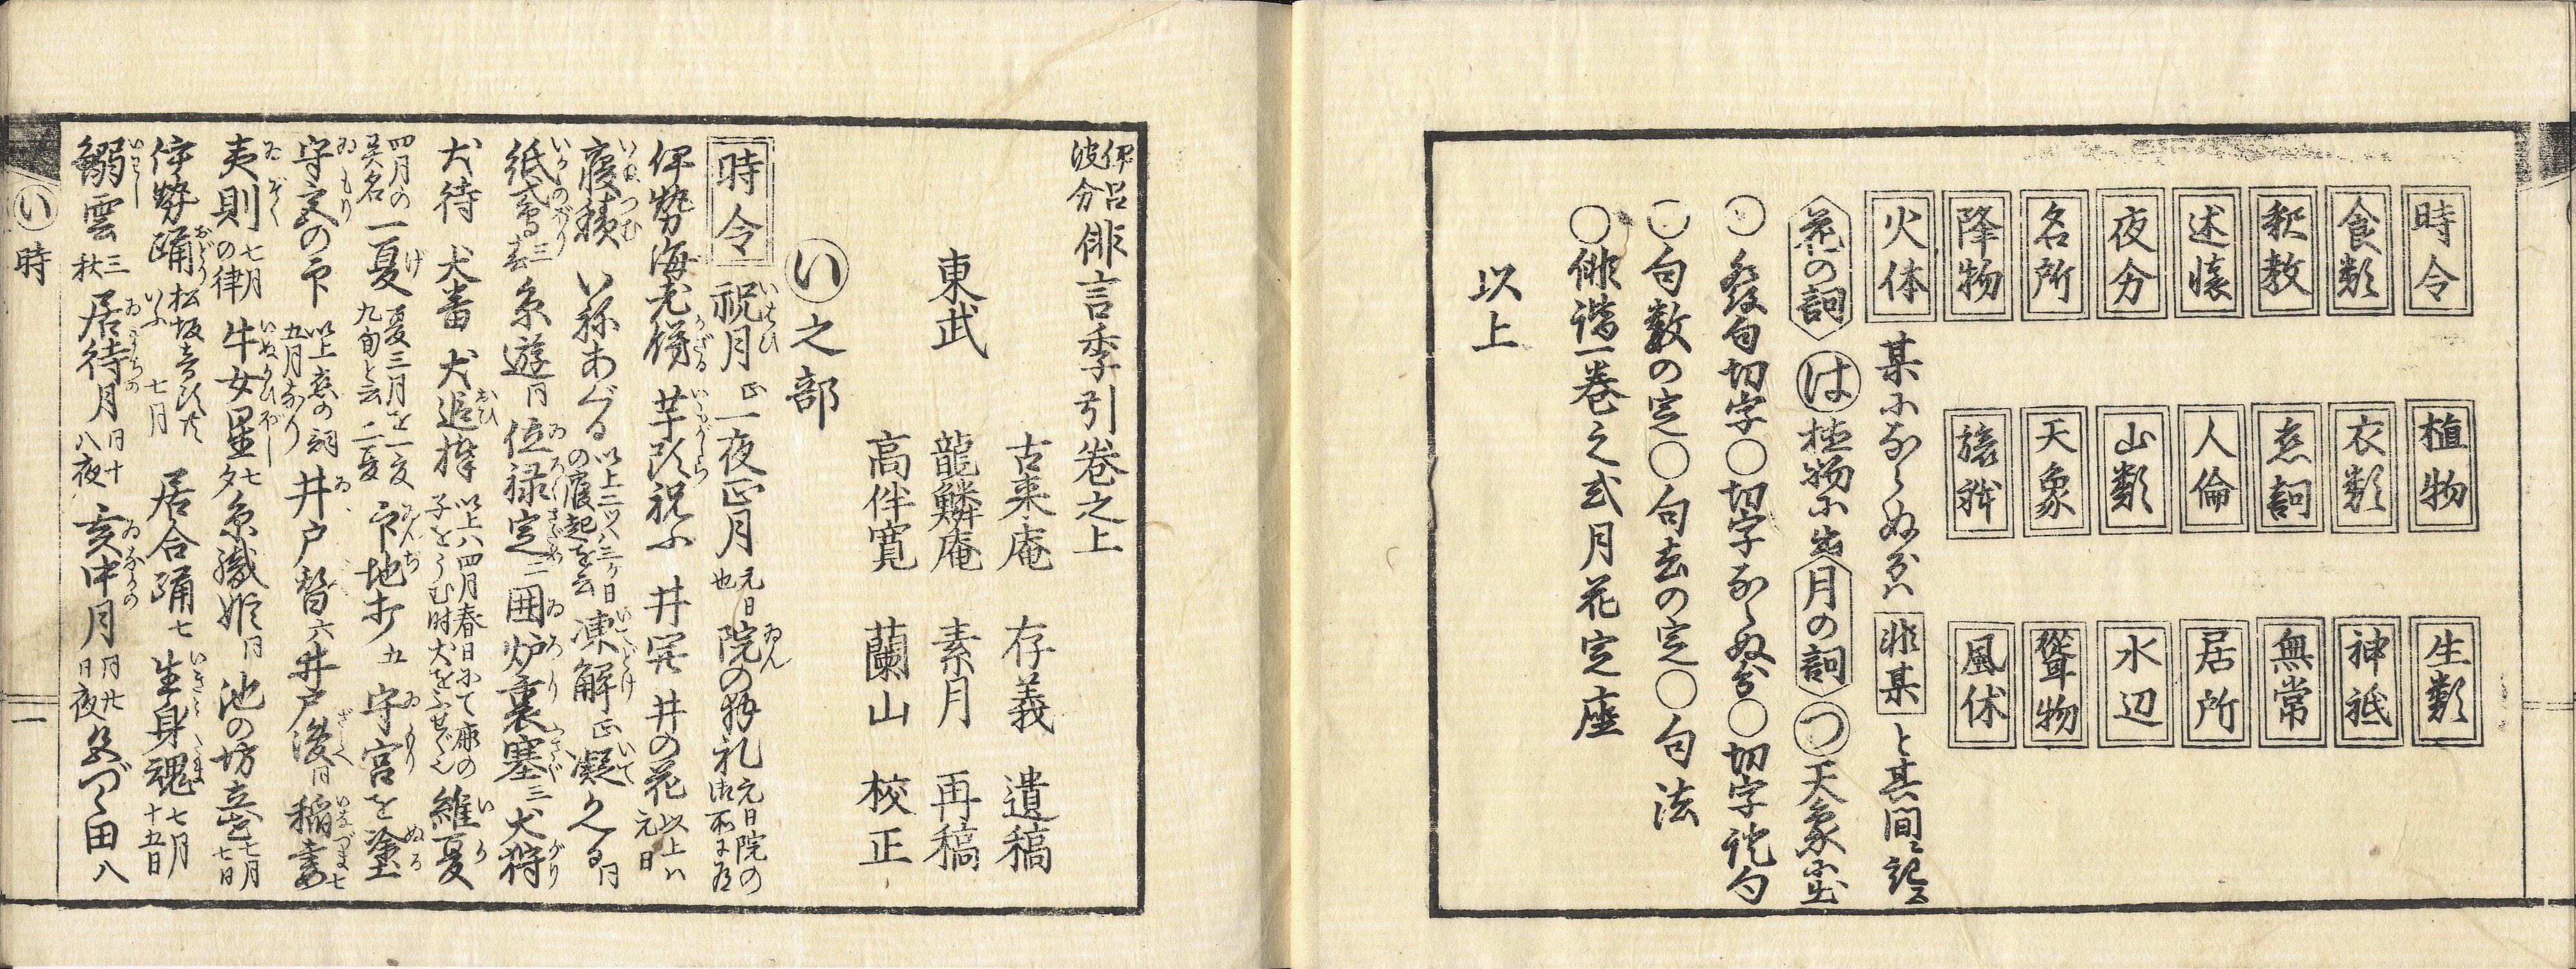 時令 植物 生類
食類 衣類 神祇
釈教 恋詞 無常
述懐 人倫 居所
夜分 山類 水辺
名所 天象 聳物
降物 旅躰 風体
火体 某にあらぬ分ハ 非某 と其間ニ記ス
花の詞 は 植物に出 月の詞 つ 天象に出
○発句切字○切字あらぬ分○切字
○句数の定○句去の定○句法
○俳諧一巻之式月花定座
以上
伊呂波分 俳言季引巻之上
古来庵 存義 遺稿
東武 龍鱗庵 素月 再稿
高伴寛 蘭山 校正
い之部
時令 祝月 正 一夜正月 元日也 院の拝礼 元日院の
伊勢海老餝 芋頭祝ふ 井開 井の花 以上ハ元日
寝積 いねあぐる 以上二ツハ三ケ日の寝起を云 凍解 正 凝
紙鳶 三春 糸遊 同 位禄定 二 囲炉裏塞 三 犬狩
犬待 犬番 犬追 維夏
四月の異名 一夏 夏三月を一夏九旬と云 一夏 印地打 五 守宮を塗
守宮の印 以上恋の詞五月なり 井戸替 六 井戸浚 同 稲妻 七
夷則 七月の律 牛女星 七夕 糸織姫 同 池の坊立花 七月七日
伊勢踊 松坂音頭共いふ 七月 居合踊 七 生身魂 七月十五日
鰯雲 三秋 居待月 同十八夜 亥中月 同廿日夜 田 八
い 時 一